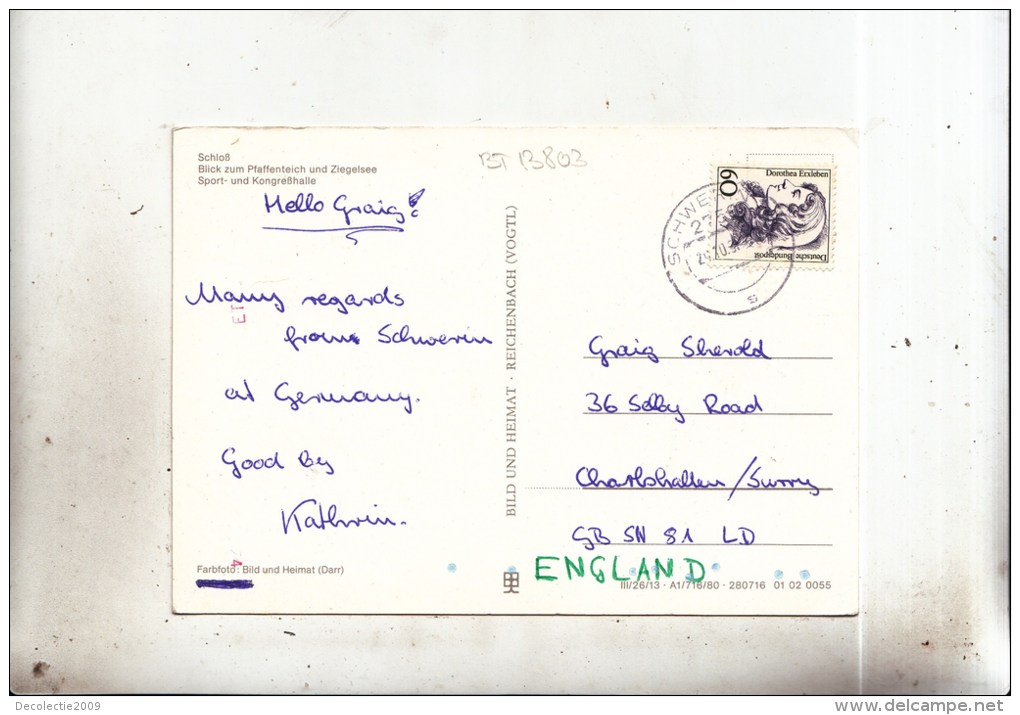 Schloß
Blick zum Pfaffenteich und Ziegelsee
Sport- und Kongreßhalle
BT 13803
Hello Graig!
Many regards
from Schwerin
at Germany.
Good by
Kathrin.
Farbfoto: Bild und Heimat (Darr)
BILD UND HEIMAT · REICHENBACH (VOGTL)
60
Dorothea Erxleben
Deutsche Bundespost
SCHWE
s
Graig Sherold
36 Selby Road
/Surry
GB SN 81 LD
ENGLAND
III/26/13 · A1/716/80 · 280716 01 02 0055
Decolectie2009
www.delcampe.net